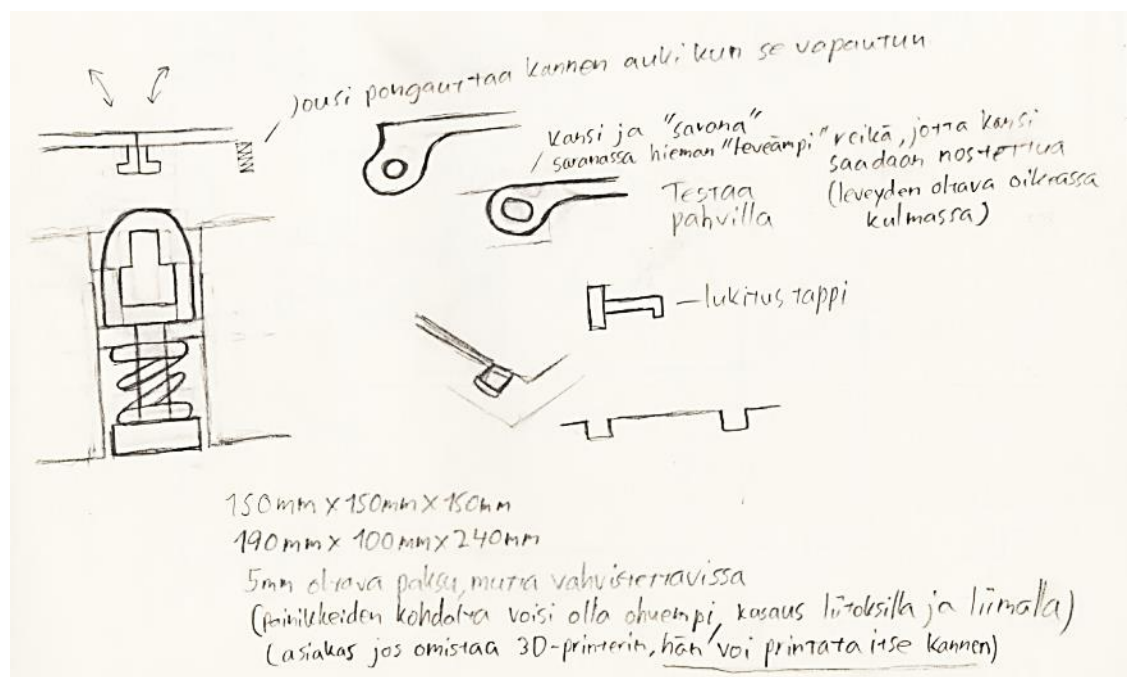 Jousi pongauttaa kannen auki kun se vapautuu
Kansi ja "sarana"
saranassa hieman "leveämpi" reikä, jotta kansi
saadaan nostettua
(leveyden oltava oikeassa
kulmassa)
Testaa
pahvilla
lukitus tappi
150mm x 150mm x 150mm
190mm x 100mm x 240mm
5mm oltava paksu, mutta vahvistettavissa
(painikkeiden kohdalta voisi olla ohuempi, kasaus liitoksilla ja liimalla)
(asiakas jos omistaa 3D-printerin, hän voi printata itse kannen)